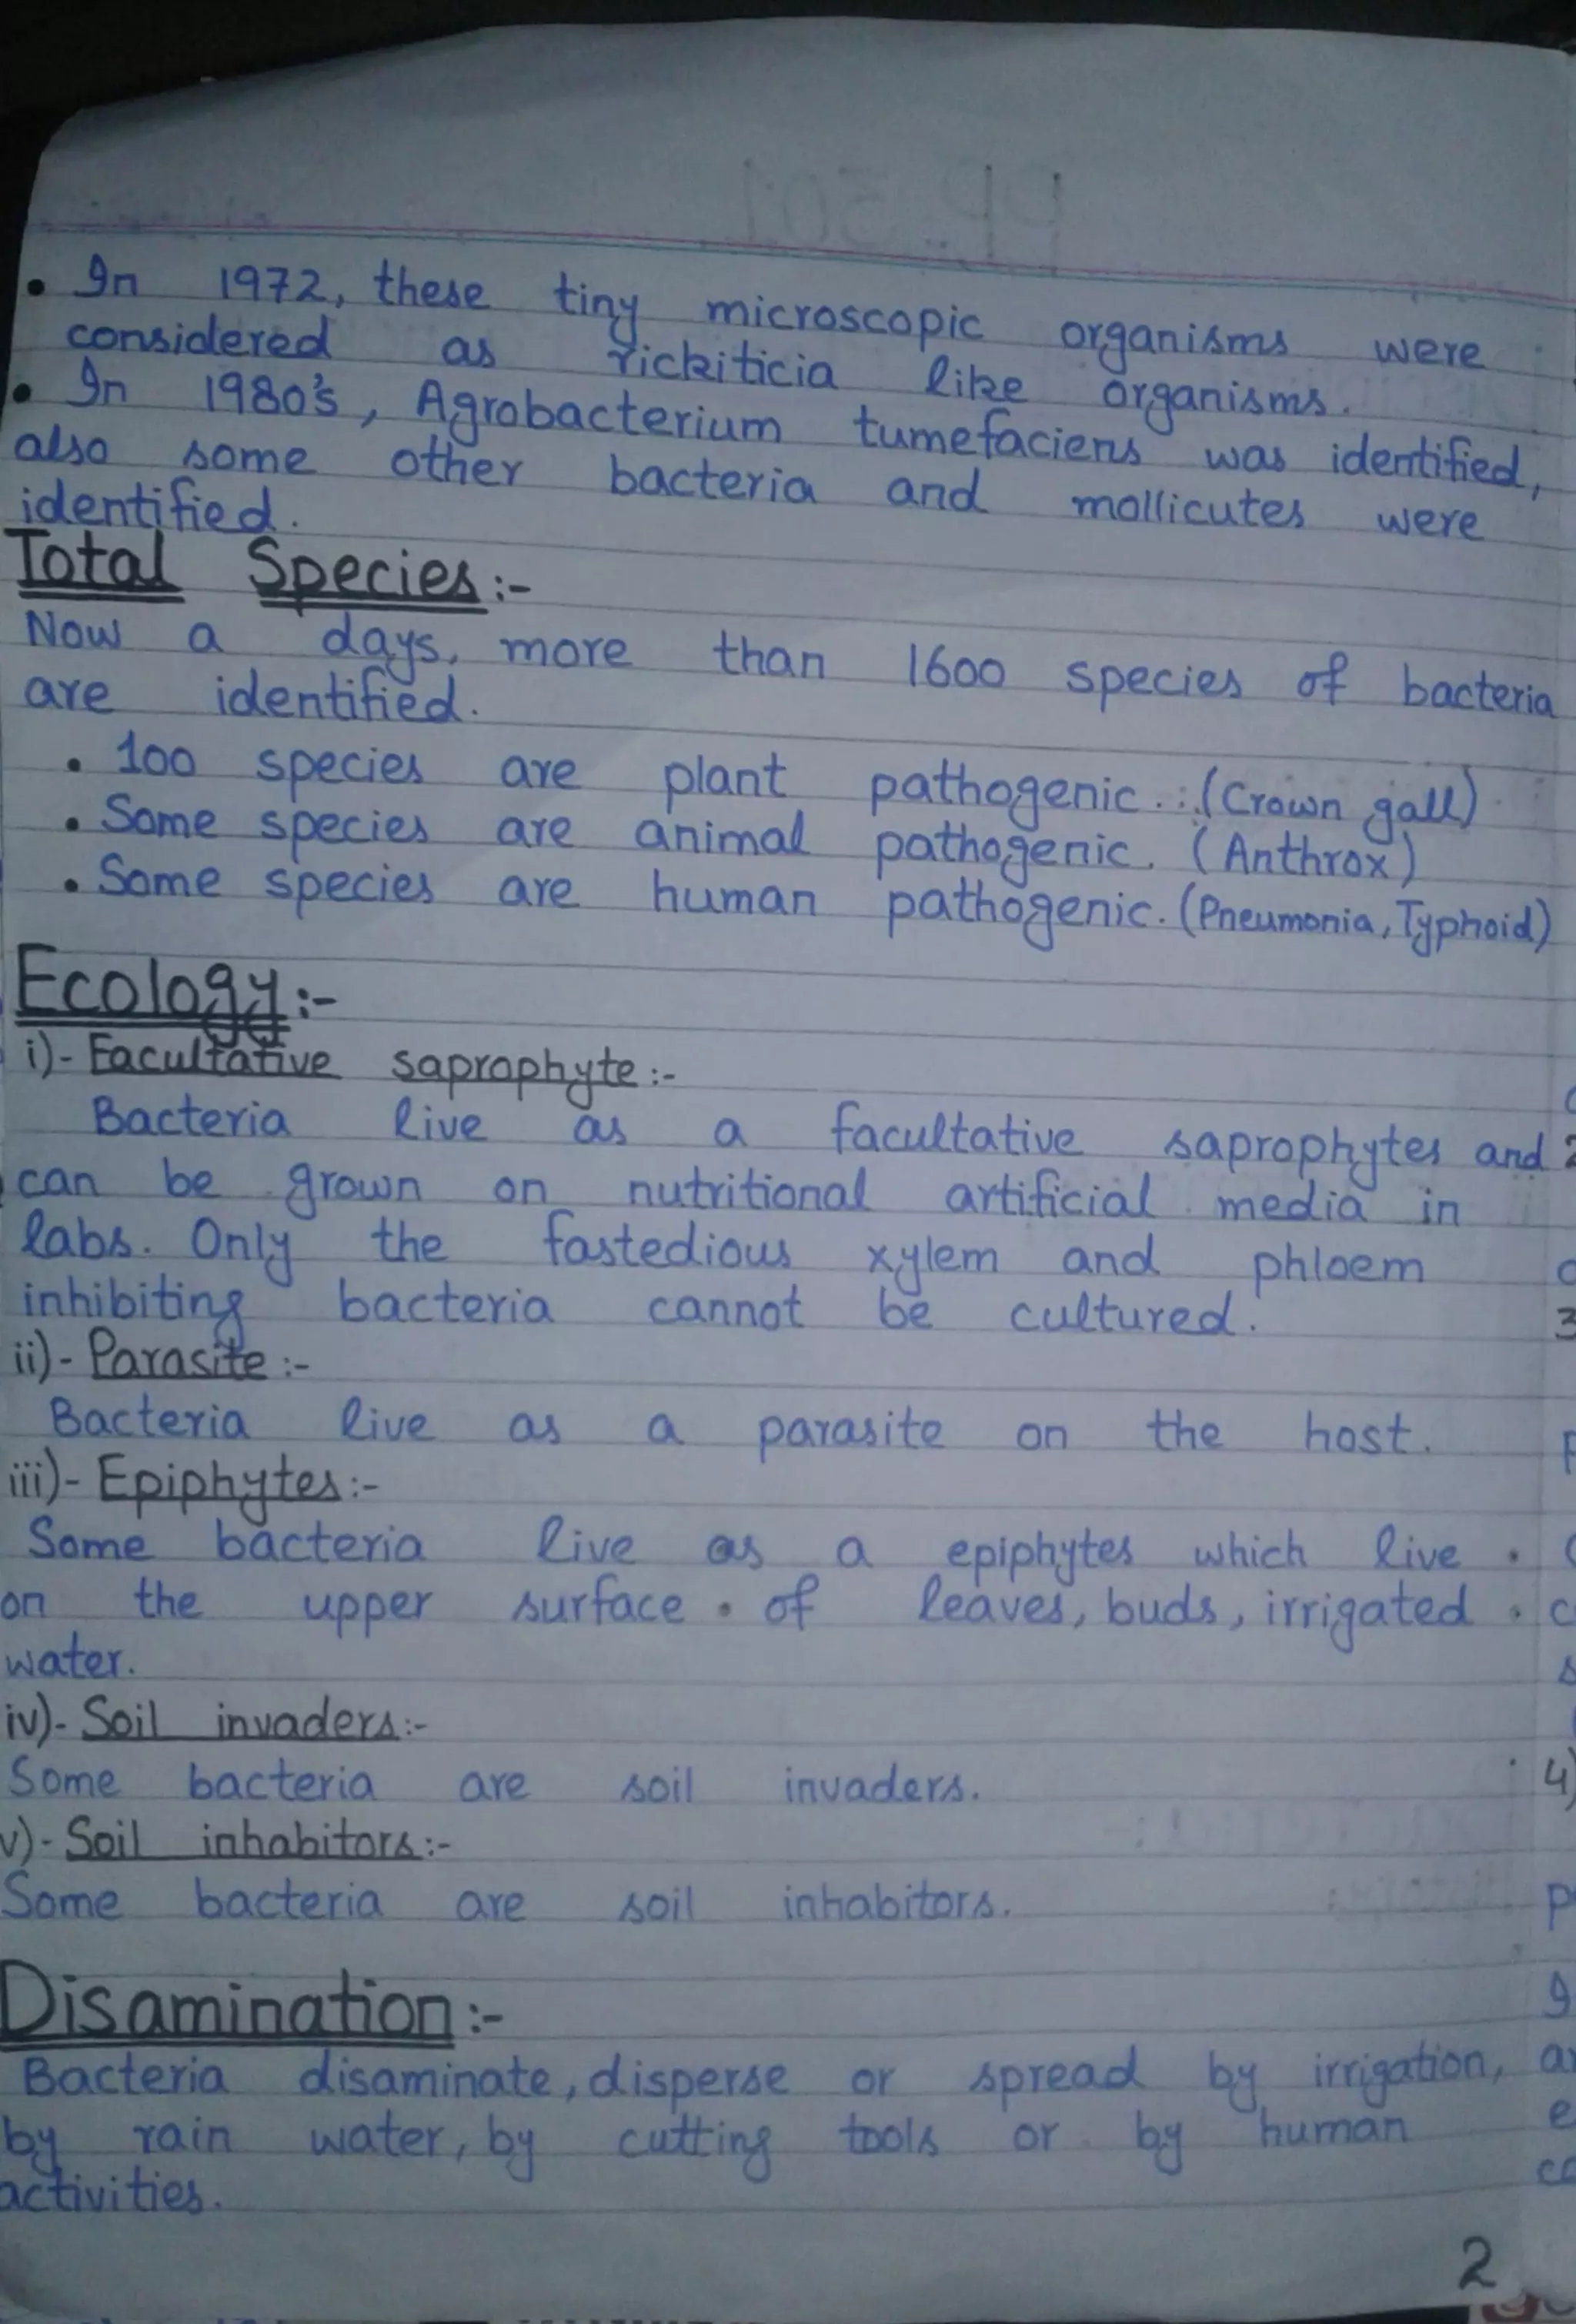 • In 1972, these tiny microscopic organisms were
considered as rickiticia like organisms.
• In 1980's, Agrobacterium tumefaciens was identified,
also some other bacteria and mollicutes were
identified.
Total Species:-
Now a days, more than 1600 species of bacteria
are identified.
• 100 species are plant pathogenic. (Crown gall)
• Some species are animal pathogenic. (Anthrox)
• Some species are human pathogenic. (Pneumonia, Typhoid)
Ecology:-
i)- Facultative saprophyte:-
Bacteria live as a facultative saprophytes and
can be grown on nutritional artificial media in
labs. Only the fastedious xylem and phloem
inhibiting bacteria cannot be cultured.
ii)- Parasite:-
Bacteria live as a parasite on the host.
iii)- Epiphytes:-
Some bacteria live as a epiphytes which live
on the upper surface of leaves, buds, irrigated
water.
iv)- Soil invaders:-
Some bacteria are soil invaders.
v)- Soil inhabitors:-
Some bacteria are soil inhabitors.
Disamination:-
Bacteria disaminate, disperse or spread by irrigation,
by rain water, by cutting tools or by human
activities.
2